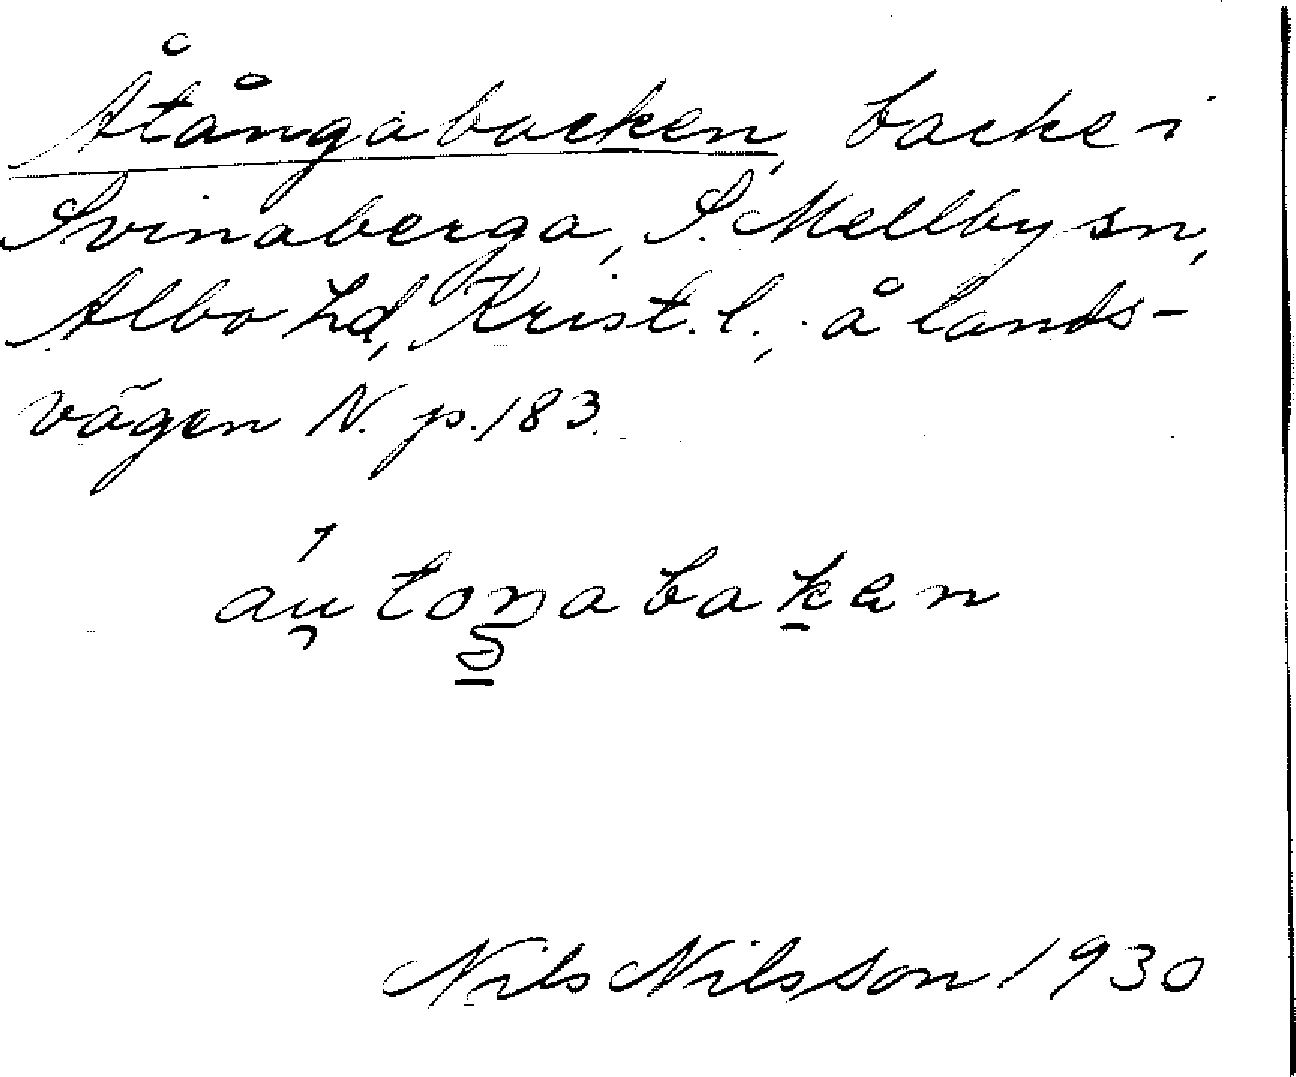 Åtångabacken, backe i
Svinaberga, S. Mellby sn,
Albo hd, Krist. l., å lands-
vägen N. p. 183.
áu̯toŋabakan
Nils Nilsson 1930